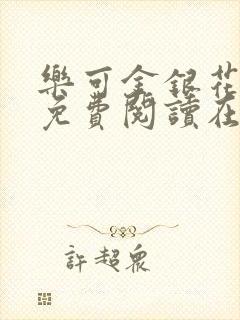 樂可金銀花
免費閱讀在
許超眾